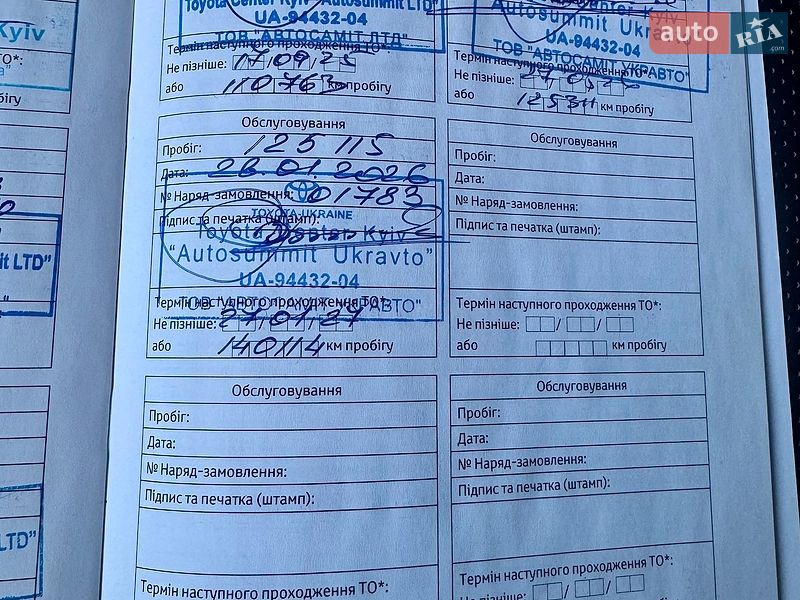 Toyota Center Kyiv "Autosummit LTD"
UA-94432-04
ТОВ "АВТОСАМІТ ЛТД"
Термін наступного проходження ТО*:
Не пізніше: 17/09/25
або 110763 км пробігу
Autosummit Ukravto
UA-94432-04
ТОВ "АВТОСАМІТ УКРАВТО"
Термін наступного проходження ТО*:
Не пізніше:
або км пробігу
auto RIA .com
Kyiv
бігу
it LTD"
LTD"
Обслуговування
Пробіг: 125115
Дата: 26.01.2026
№ Наряд-замовлення: 01783
Підпис та печатка (штамп):
TOYOTA UKRAINE
Toyota Center Kyiv
"Autosummit Ukravto"
UA-94432-04
Термін наступного проходження ТО*:
Не пізніше: 27/01/27
або 140114 км пробігу
Обслуговування
Пробіг:
Дата:
№ Наряд-замовлення:
Підпис та печатка (штамп):
Термін наступного проходження ТО*:
Не пізніше: / /
або км пробігу
Обслуговування
Пробіг:
Дата:
№ Наряд-замовлення:
Підпис та печатка (штамп):
Термін наступного проходження ТО*:
Обслуговування
Пробіг:
Дата:
№ Наряд-замовлення:
Підпис та печатка (штамп):
Термін наступного проходження ТО*:
Не пізніше: / /